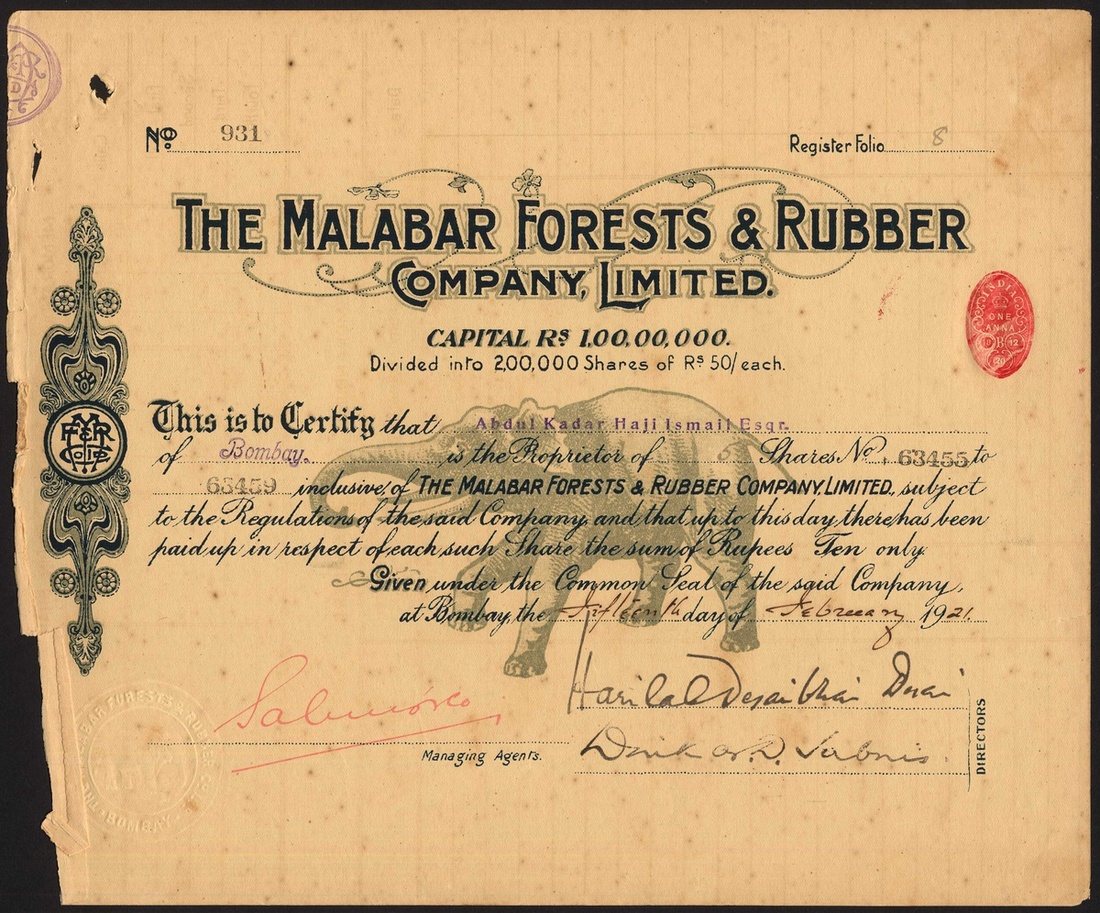 No. 931
Register Folio 8
THE MALABAR FORESTS & RUBBER
COMPANY, LIMITED.
CAPITAL Rs 1,00,00,000.
Divided into 2,00,000 Shares of Rs 50/ each.
INDIA
ONE
ANNA
This is to Certify that Abdul Kadar Haji Ismail Esqr.
of Bombay. is the Proprietor of 5 Shares No. 63455 to
63459 inclusive, of THE MALABAR FORESTS & RUBBER COMPANY, LIMITED, subject
to the Regulations of the said Company, and that up to this day there has been
paid up in respect of each such Share the sum of Rupees Ten only.
Given under the Common Seal of the said Company,
at Bombay, the Fifteenth day of February 1921.
Harilal Desaibhai Desai
Managing Agents.
DIRECTORS
BOMBAY